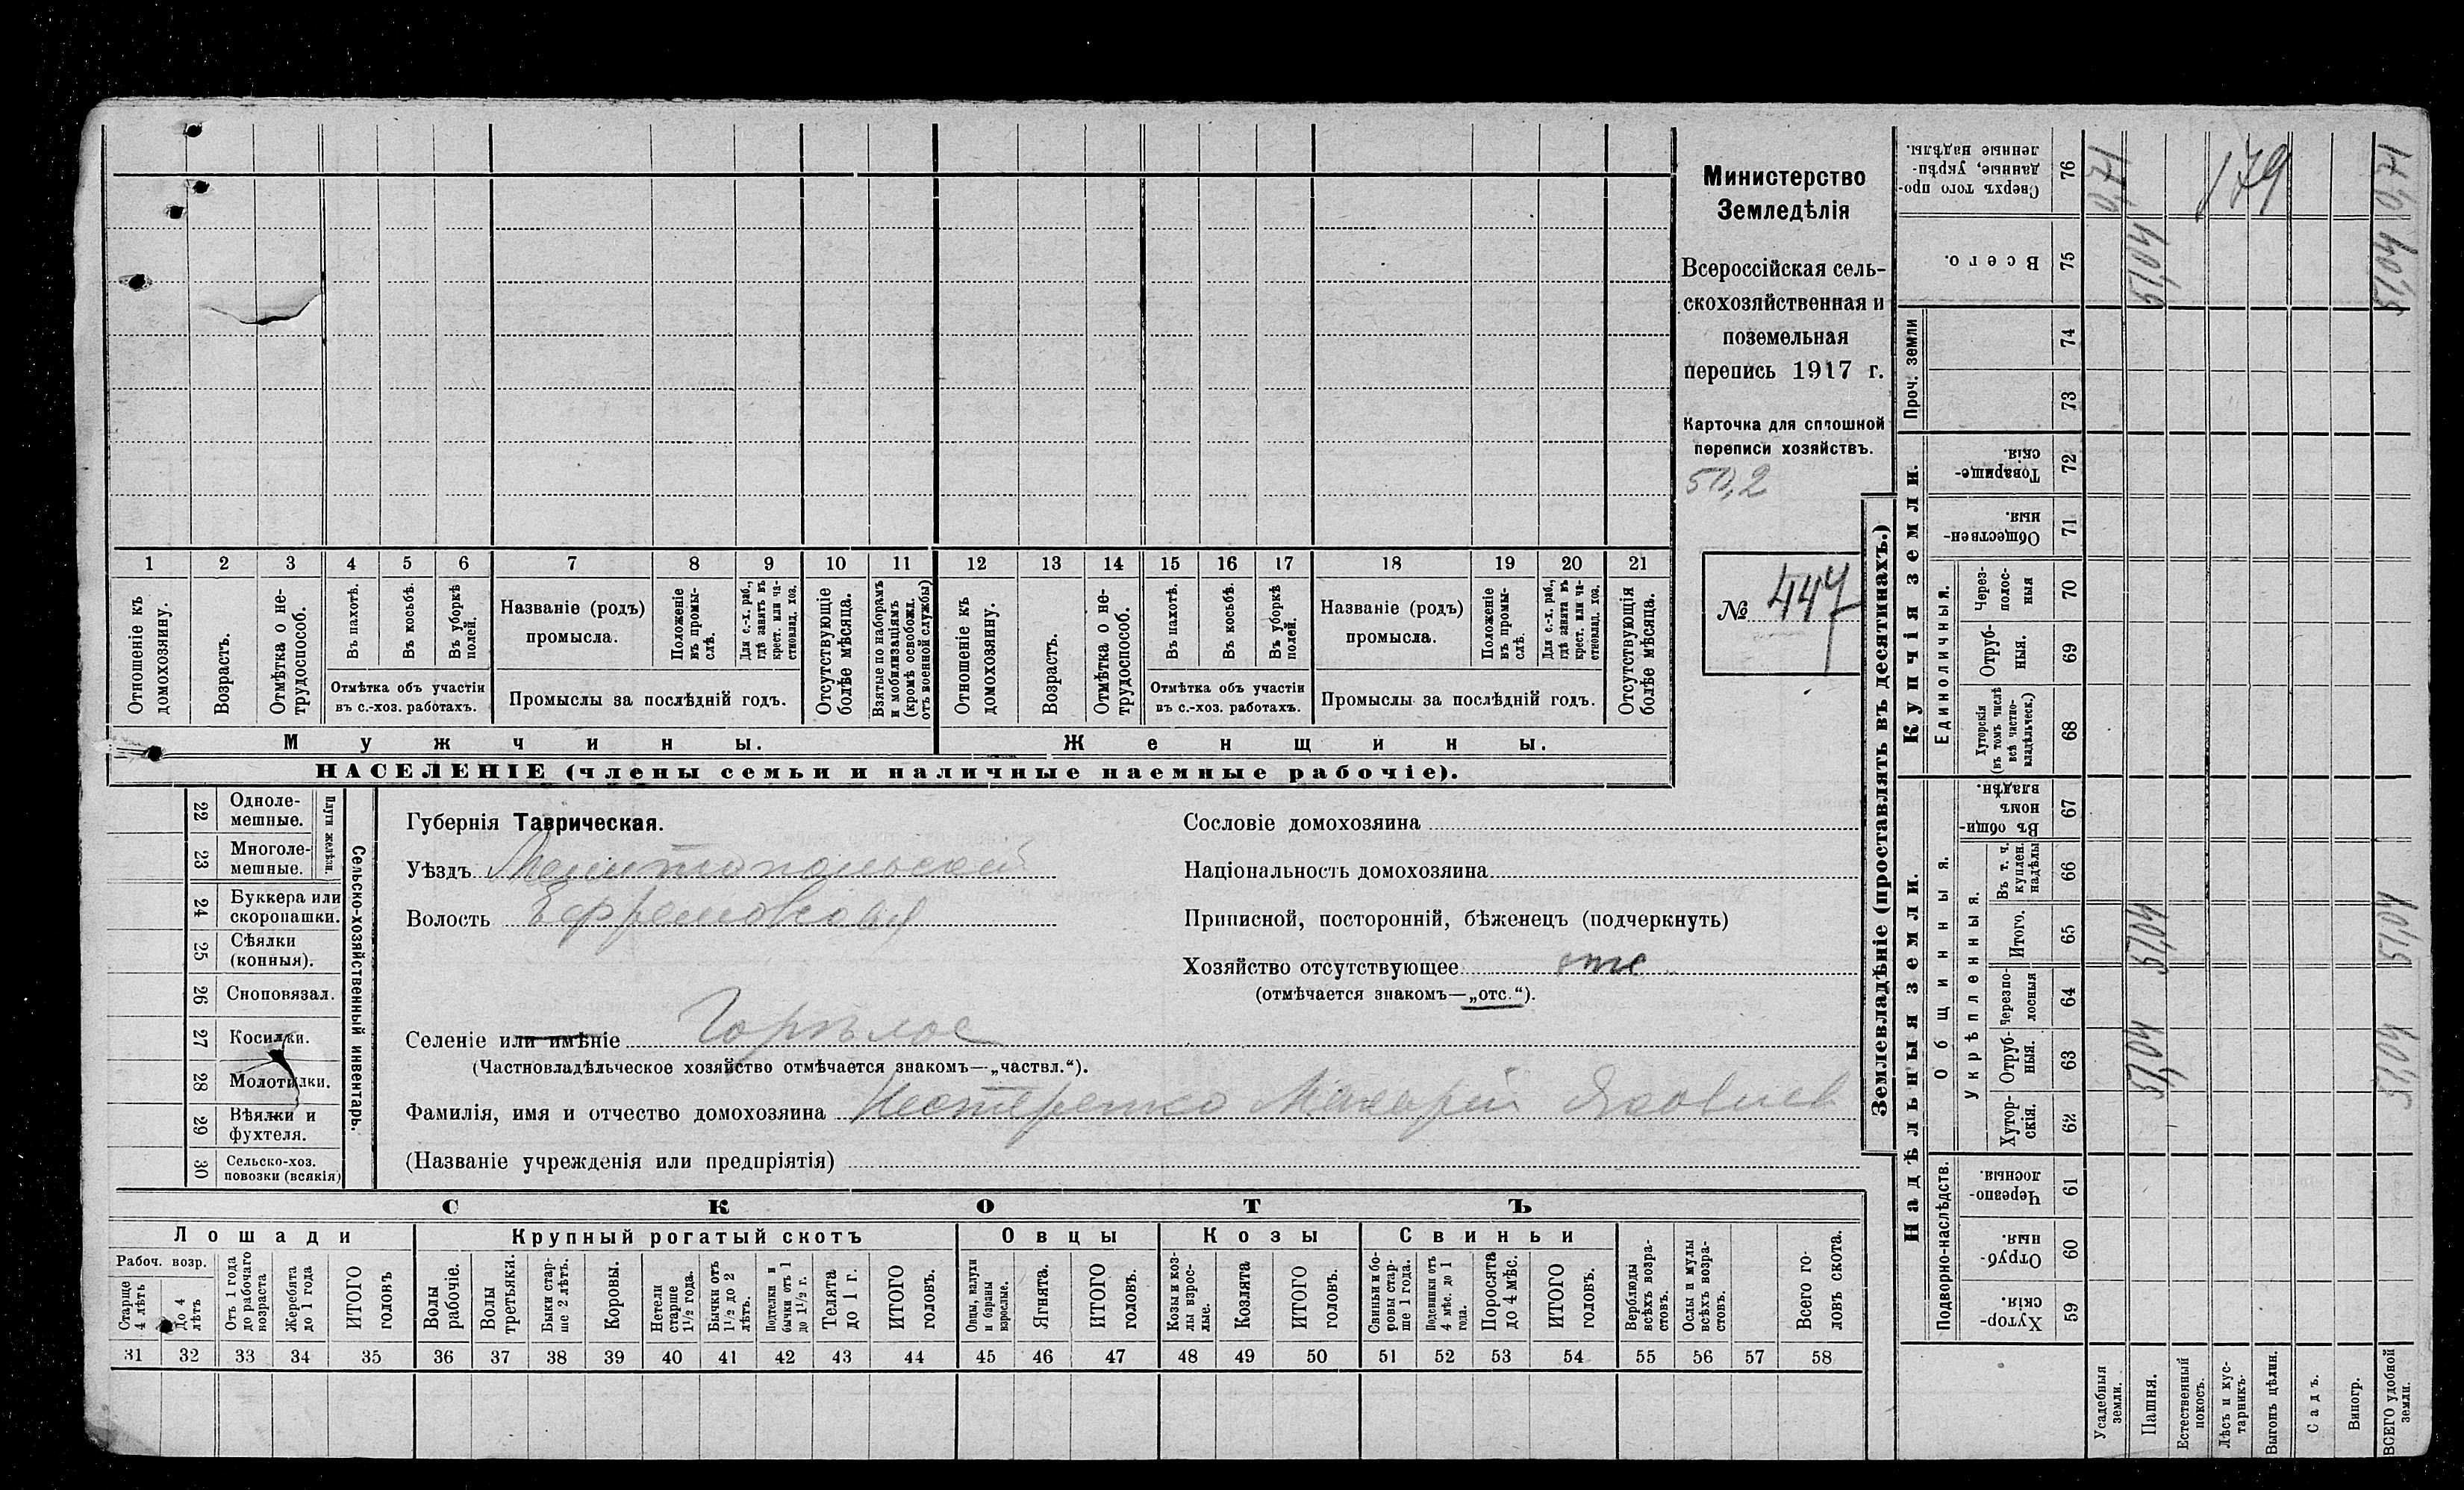 Министерство
Земледѣлія
Всероссійская сель-
скохозяйственная и
поземельная
перепись 1917 г.
Карточка для сплошной
переписи хозяйствъ.
50,2
№ 447
1 2 3 4 5 6 7 8 9 10 11 12 13 14 15 16 17 18 19 20 21
Отношеніе къ домохозяину.
Возрастъ.
Отмѣтка о не-трудоспособ.
Въ пахотѣ.
Въ косьбѣ.
Въ уборкѣ полей.
Отмѣтка объ участіи
въ с.-хоз. работахъ.
Названіе (родъ)
промысла.
Положеніе въ промы-слѣ.
Для с.-х. раб., гдѣ занятъ въ крест. или ча-стновлад. хоз.
Промыслы за послѣдній годъ.
Отсутствующіе болѣе мѣсяца.
Взятые по наборамъ и мобилизаціямъ (кромѣ освобожд. отъ военной службы)
Отношеніе къ домохозяину.
Возрастъ.
Отмѣтка о не-трудоспособ.
Въ пахотѣ.
Въ косьбѣ.
Въ уборкѣ полей.
Отмѣтка объ участіи
въ с.-хоз. работахъ.
Названіе (родъ)
промысла.
Положеніе въ промы-слѣ.
Для с.-х. раб., гдѣ занята въ крест. или ча-стновлад. хоз.
Промыслы за послѣдній годъ.
Отсутствующія болѣе мѣсяца.
Мужчины.
Женщины.
НАСЕЛЕНІЕ (члены семьи и наличные наемные рабочіе).
22 Одноле-мешные.
23 Многоле-мешные.
Плуги желѣзн.
24 Буккера или скоропашки.
25 Сѣялки (конныя).
26 Сноповязал.
27 Косилки.
28 Молотилки.
29 Вѣялки и фухтеля.
30 Сельско-хоз. повозки (всякія)
Сельско-хозяйственный инвентарь.
Губернія Таврическая.
Уѣздъ Мелитопольскій
Волость Ефремовская
Селеніе или имѣніе Горѣлое
(Частновладѣльческое хозяйство отмѣчается знакомъ—„частвл.“).
Фамилія, имя и отчество домохозяина Нестеренко Макарій Яковлев
(Названіе учрежденія или предпріятія)
Сословіе домохозяина
Національность домохозяина
Приписной, посторонній, бѣженецъ (подчеркнуть)
Хозяйство отсутствующее отс
(отмѣчается знакомъ—„отс.“).
СКОТЪ
Лошади
Крупный рогатый скотъ
Овцы
Козы
Свиньи
Рабоч. возр.
Старше 4 лѣтъ
До 4 лѣтъ
Отъ 1 года до рабочаго возраста
Жеребята до 1 года
ИТОГО головъ
Волы рабочіе.
Волы третьяки.
Быки стар-ше 2 лѣтъ.
Коровы.
Нетели старше 1½ года.
Бычки отъ 1½ до 2 лѣтъ.
Подтелки и бычки отъ 1 до 1½ г.
Телята до 1 г.
ИТОГО головъ.
Овцы, валухи и бараны взрослые.
Ягнята.
ИТОГО головъ.
Козы и коз-лы взрос-лые.
Козлята
ИТОГО головъ.
Свиньи и бо-ровы стар-ше 1 года.
Подсвинки отъ 4 мѣс. до 1 года.
Поросята до 4 мѣс.
ИТОГО головъ.
Верблюды всѣхъ возра-стовъ.
Ослы и мулы всѣхъ возра-стовъ.
Всего го-ловъ скота.
31 32 33 34 35 36 37 38 39 40 41 42 43 44 45 46 47 48 49 50 51 52 53 54 55 56 57 58
Землевладѣніе (проставлять въ десятинахъ.)
Надѣльныя земли.
Купчія земли.
Проч. земли
Подворно-наслѣдств.
Общинныя.
Укрѣпленныя.
Единоличныя.
Сверхъ того про-данные, укрѣп-ленные надѣлы. 76
Всего. 75
74
73
Товарище-скія. 72
Обществен-ныя. 71
Через-полос-ныя 70
Отруб-ныя. 69
Хуторскія (въ томъ числѣ всѣ частно-владѣльческ.) 68
Въ общин-номъ владѣн. 67
Въ т. ч. куплен. надѣлы 66
Итого. 65
Черезпо-лосныя 64
Отруб-ныя. 63
Хутор-скія. 62
Черезпо-лосныя. 61
Отруб-ныя. 60
Хутор-скія. 59
Усадебныя земли.
Пашня.
Естественный покосъ.
Лѣсъ и кус-тарникъ.
Выгонъ цѣлин.
Садъ.
Виногр.
ВСЕГО удобной земли.
179